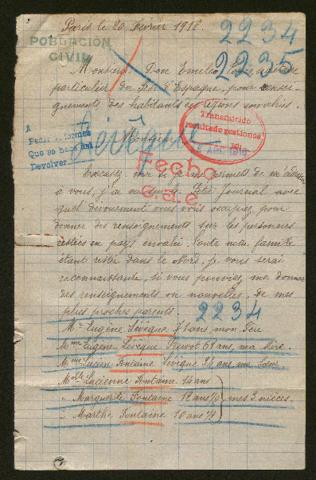 Paris le 20 Février 1918
2234
2235
POBLACIÓN
CIVIL
Monsieur Don Emilio
particulier du Roi d'Espagne, pour rensei-
gnements des habitants en régions envahies.
Pedir informes
Que se haga así
Devolver
Transmitido
resultado gestiones
Fecho
Excusez si je me permets de m'adresser
à vous, j'ai vu sur le Petit Journal avec
quel dévouement vous vous occupez, pour
donner des renseignements sur les personnes
restées en pays envahi. Toute notre famille
étant restée dans le Nord, je vous serai
reconnaissante, si vous pouviez me donner
des renseignements ou nouvelles, de mes
plus proches parents.
2234
Mr Eugène Lévêque ans mon Père
Mme Eugène Lévêque 61 ans, ma Mère.
Mme Lucien Fontaine Lévêque 34 ans ma Sœur
Melle Lucienne Fontaine 14 ans
" Marguerite Fontaine 12 ans ½ mes 3 nièces.
" Marthe Fontaine 10 ans ½